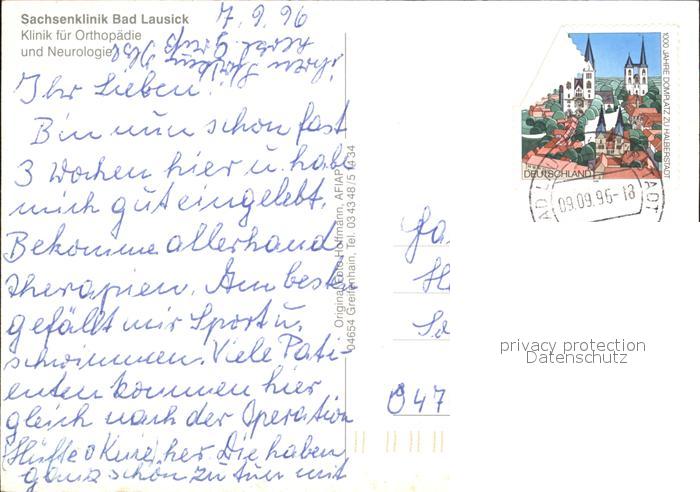 Sachsenklinik Bad Lausick
Klinik für Orthopädie
und Neurologie
7.9.96
Ihr Lieben!
Bin nun schon fast
3 Wochen hier u. habe
mich gut eingelebt.
Bekomme allerhand
Therapien. Am besten
gefällt mir Sport u.
schwimmen. Viele Pati-
enten kommen hier
gleich nach der Operation
(Hüfte o Knie) her. Die haben
ganz schön zu tun mit
Original Foto Hoffmann, AFIAP
04654 Greifenhain, Tel. 034348/51434
1000 JAHRE DOMPLATZ ZU HALBERSTADT
DEUTSCHLAND
09.09.96-18
privacy protection
Datenschutz
047